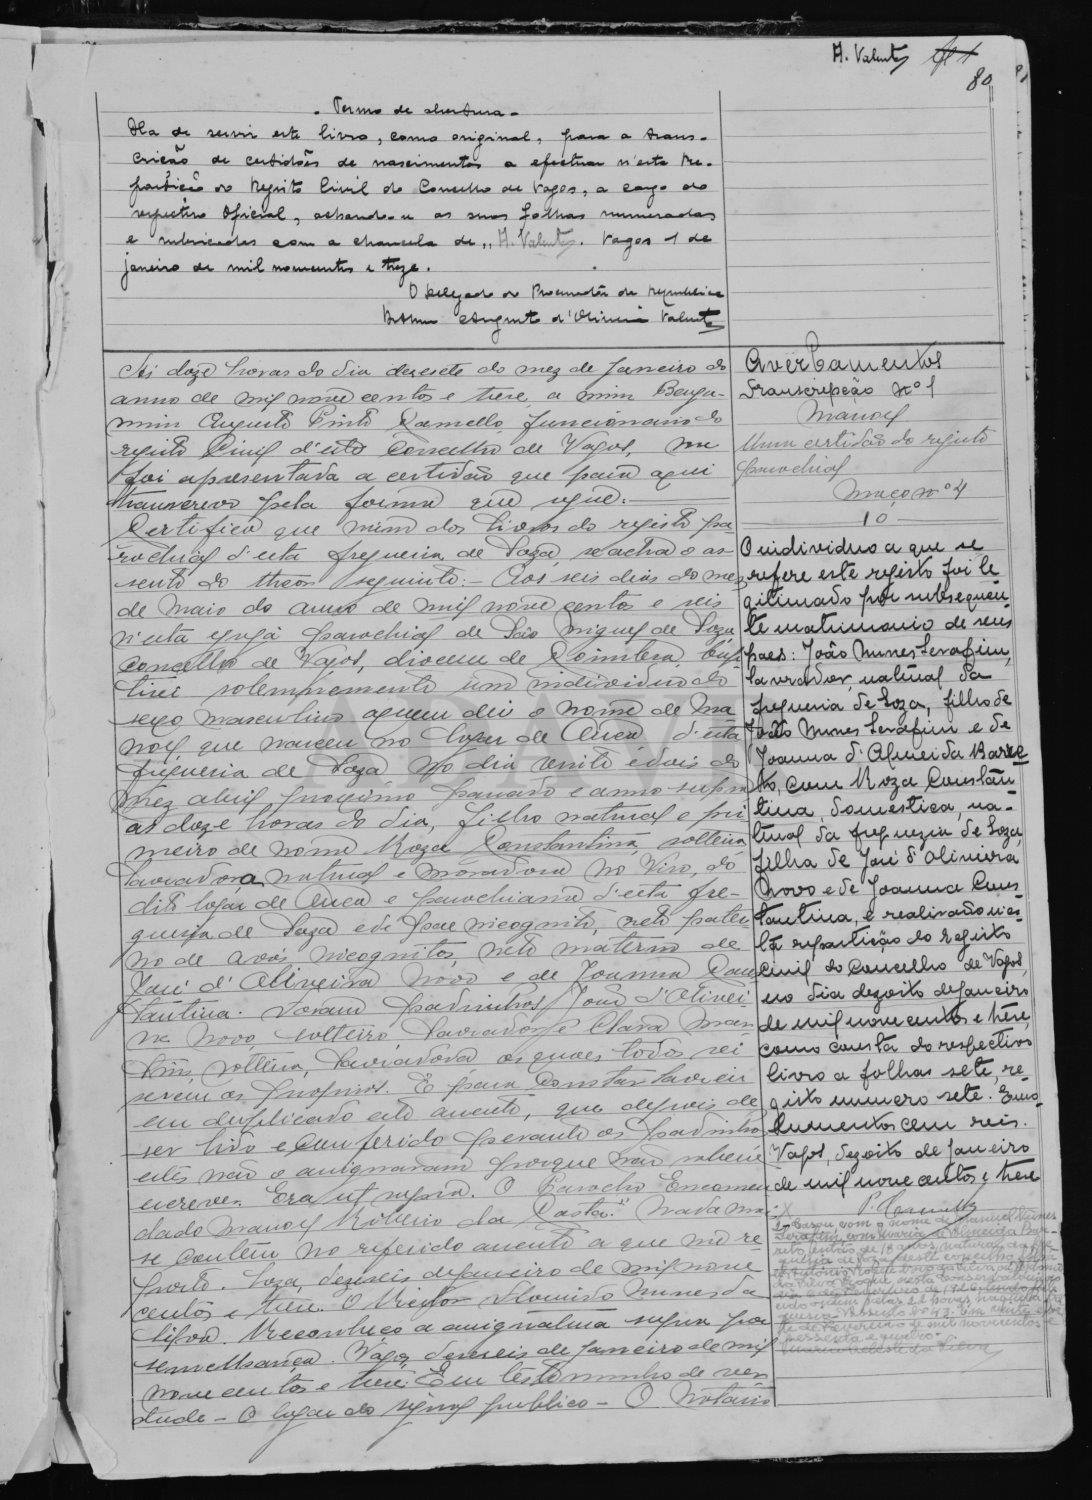 A. Valente
80
- Termo de abertura -
Ha de servir este livro, como original, para a trans-
crição de certidões de nascimentos a efectuar n'esta Re-
partição do Registo Civil do Concelho de Vagos, a cargo do
respectivo Oficial, achando-se as suas folhas numeradas
e rubricadas com a chancela de "A. Valente". Vagos 1 de
janeiro de mil novecentos e treze.
O Delegado do Procurador da Republica
Augusto d'Oliveira Valente
Ás doze horas do dia dezesete do mez de Janeiro do
anno de mil nove centos e treze, a mim Benja-
mim Augusto Pinto Camello, funcionario do
registo Civil d'este Concelho de Vagos, me
foi apresentada a certidão que para aqui
transcrevo pela forma que segue.
Certifico que n'um dos livros do registo pa-
rochial d'esta freguesia de Soza, se acha o as-
sento do theor seguinte: - Aos seis dias do mez
de Maio do anno de mil nove centos e seis
n'esta egreja parochial de São Miguel de Soza,
concelho de Vagos, diocese de Coimbra, bap-
tisei solemnemente um individuo do
sexo masculino a quem dei o nome de Ma
noel que nasceu no logar de Ouca, d'esta
freguesia de Soza no dia vinte e dois do
mez abril proximo passado e anno supra
ás doze horas do dia, filho natural e pri
meiro de nome Roza Constantina, solteira
lavradora, natural e moradora no Viso, do
dito logar de Ouca e parochiana d'esta fre-
guesia de Soza e de pae incognito, neto pater-
no de avós incognitos, neto materno de
José d'Oliveira Novo e de Joanna Cons
tantina. Foram padrinhos João d'Olivei
ra Novo, solteiro lavrador e Clara Mar
tins, solteira, lavradora os quaes todos sei
serem os proprios. E para constar lavrei
em duplicado este assento, que depois de
ser lido e conferido perante os padrinhos
estes não o assignaram porque não sabiam
escrever. Era ut supra. O Parocho Encomen
dado Manoel Ribeiro da Costa." Nada mais
se contem no referido assento a que me re-
porto. Soza, dezeseis de janeiro de mil nove
centos e treze. O Nunes da
Silva. Reconheço a assignatura supra por
semelhança. Vagos, dezeseis de janeiro de mil
nove centos e treze. Em testemunho de ver
dade - O logar do signal publico - O Notario
Averbamentos
Transcripção Nº 1
Manoel
Uma certidão do registo
parochial
Maço nº 4
1º
O individuo a que se
refere este registo foi le-
gitimado por subsequen-
te matrimonio de seus
paes: João Nunes Serafim,
lavrador, natural da
freguesia de Soza, filho de
João Nunes Serafim e de
Joanna d'Almeida Barre-
to, com Roza Constan-
tina, domestica, na-
tural da freguezia de Soza,
filha de José d'Oliveira
Novo e de Joanna Cons-
tantina, e realisado nes-
ta repartição do registo
civil do concelho de Vagos
no dia dezoito de janeiro
de mil nove centos e treze,
como consta do respectivo
livro a folhas sete, re-
gisto numero sete. Emo-
lumentos cem reis.
Vagos, dezoito de Janeiro
de mil nove centos e treze
P. Camello
Casou com o nome de Manuel Nunes
Serafim com Maria de Almeida Bar-
reto,